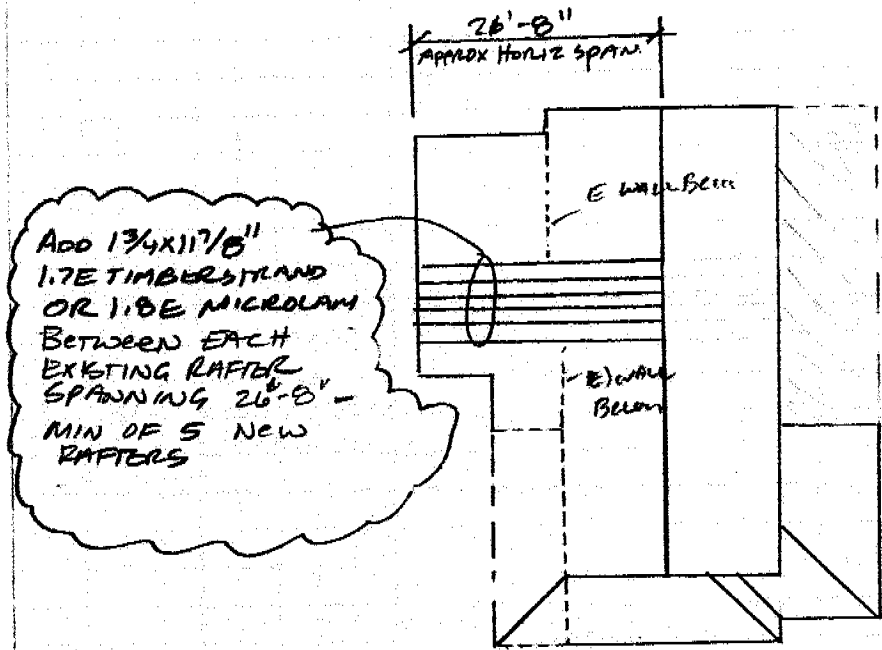 26'-8"
APPROX HORIZ SPAN.
E WALL BELOW
ADD 1 3/4 X 11 7/8"
1.7E TIMBERSTRAND
OR 1.8E MICROLAM
BETWEEN EACH
EXISTING RAFTER
SPANNING 26'-8" -
MIN OF 5 NEW
RAFTERS
E) WALL
BELOW